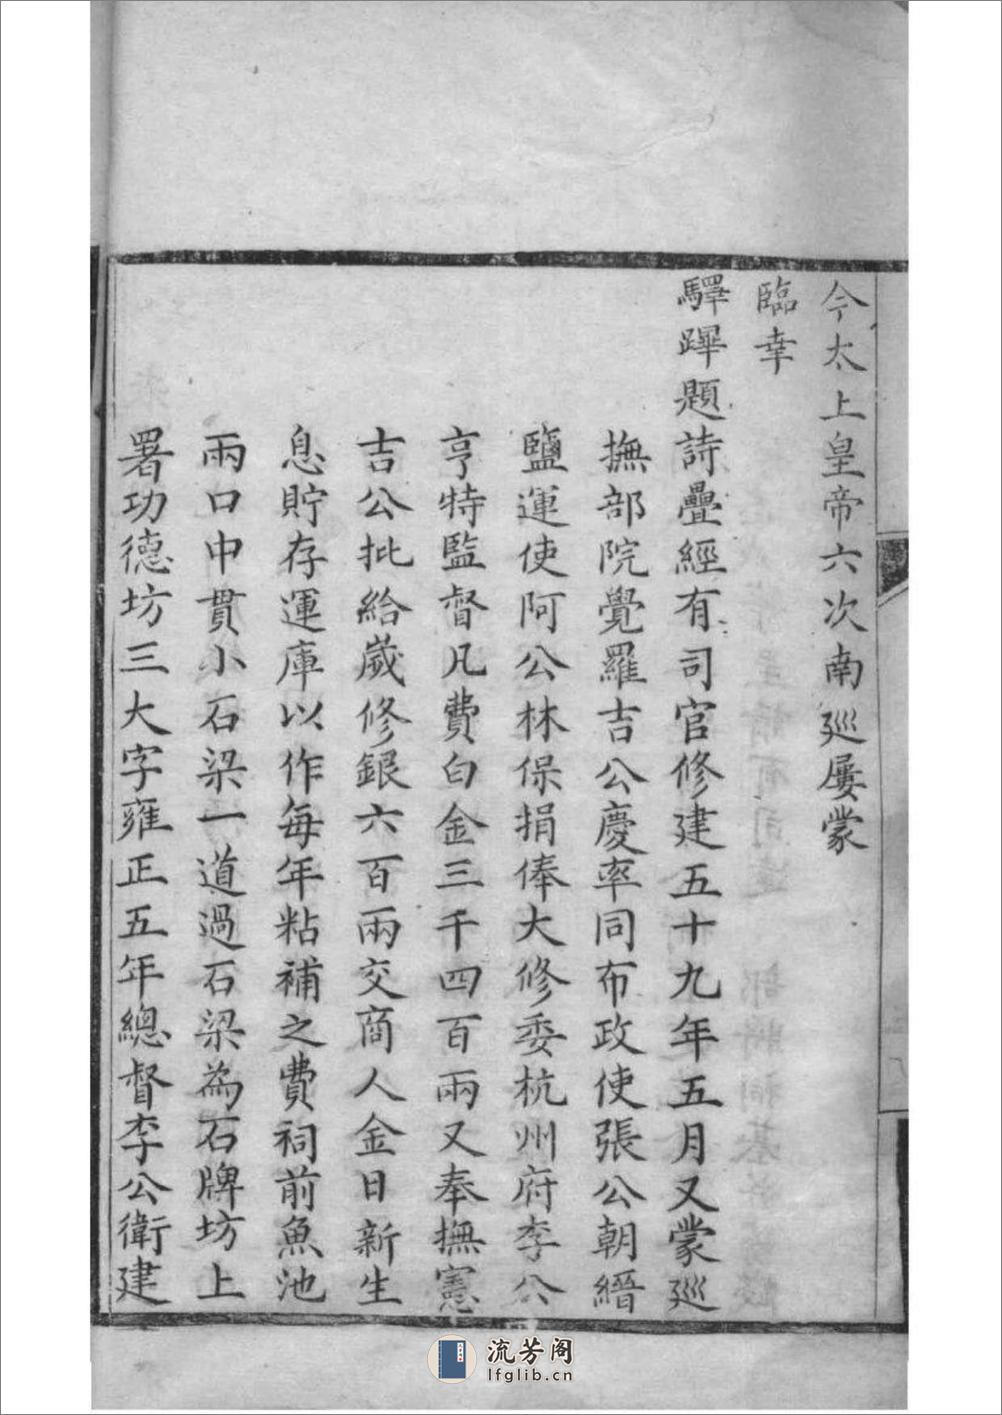 今太上皇帝六次南廵屢蒙
臨幸
驛蹕題詩疊經有司官修建五十九年五月又蒙廵
撫部院覺羅吉公慶率同布政使張公朝縉
鹽運使阿公林保捐俸大修委杭州府李公
亨特監督凡費白金三千四百兩又奉撫憲
吉公批給歲修銀六百兩交商人金日新生
息貯存運庫以作每年粘補之費祠前魚池
兩口中貫小石梁一道過石梁為石牌坊上
署功德坊三大字雍正五年總督李公衛建
流芳阁
lfglib.cn